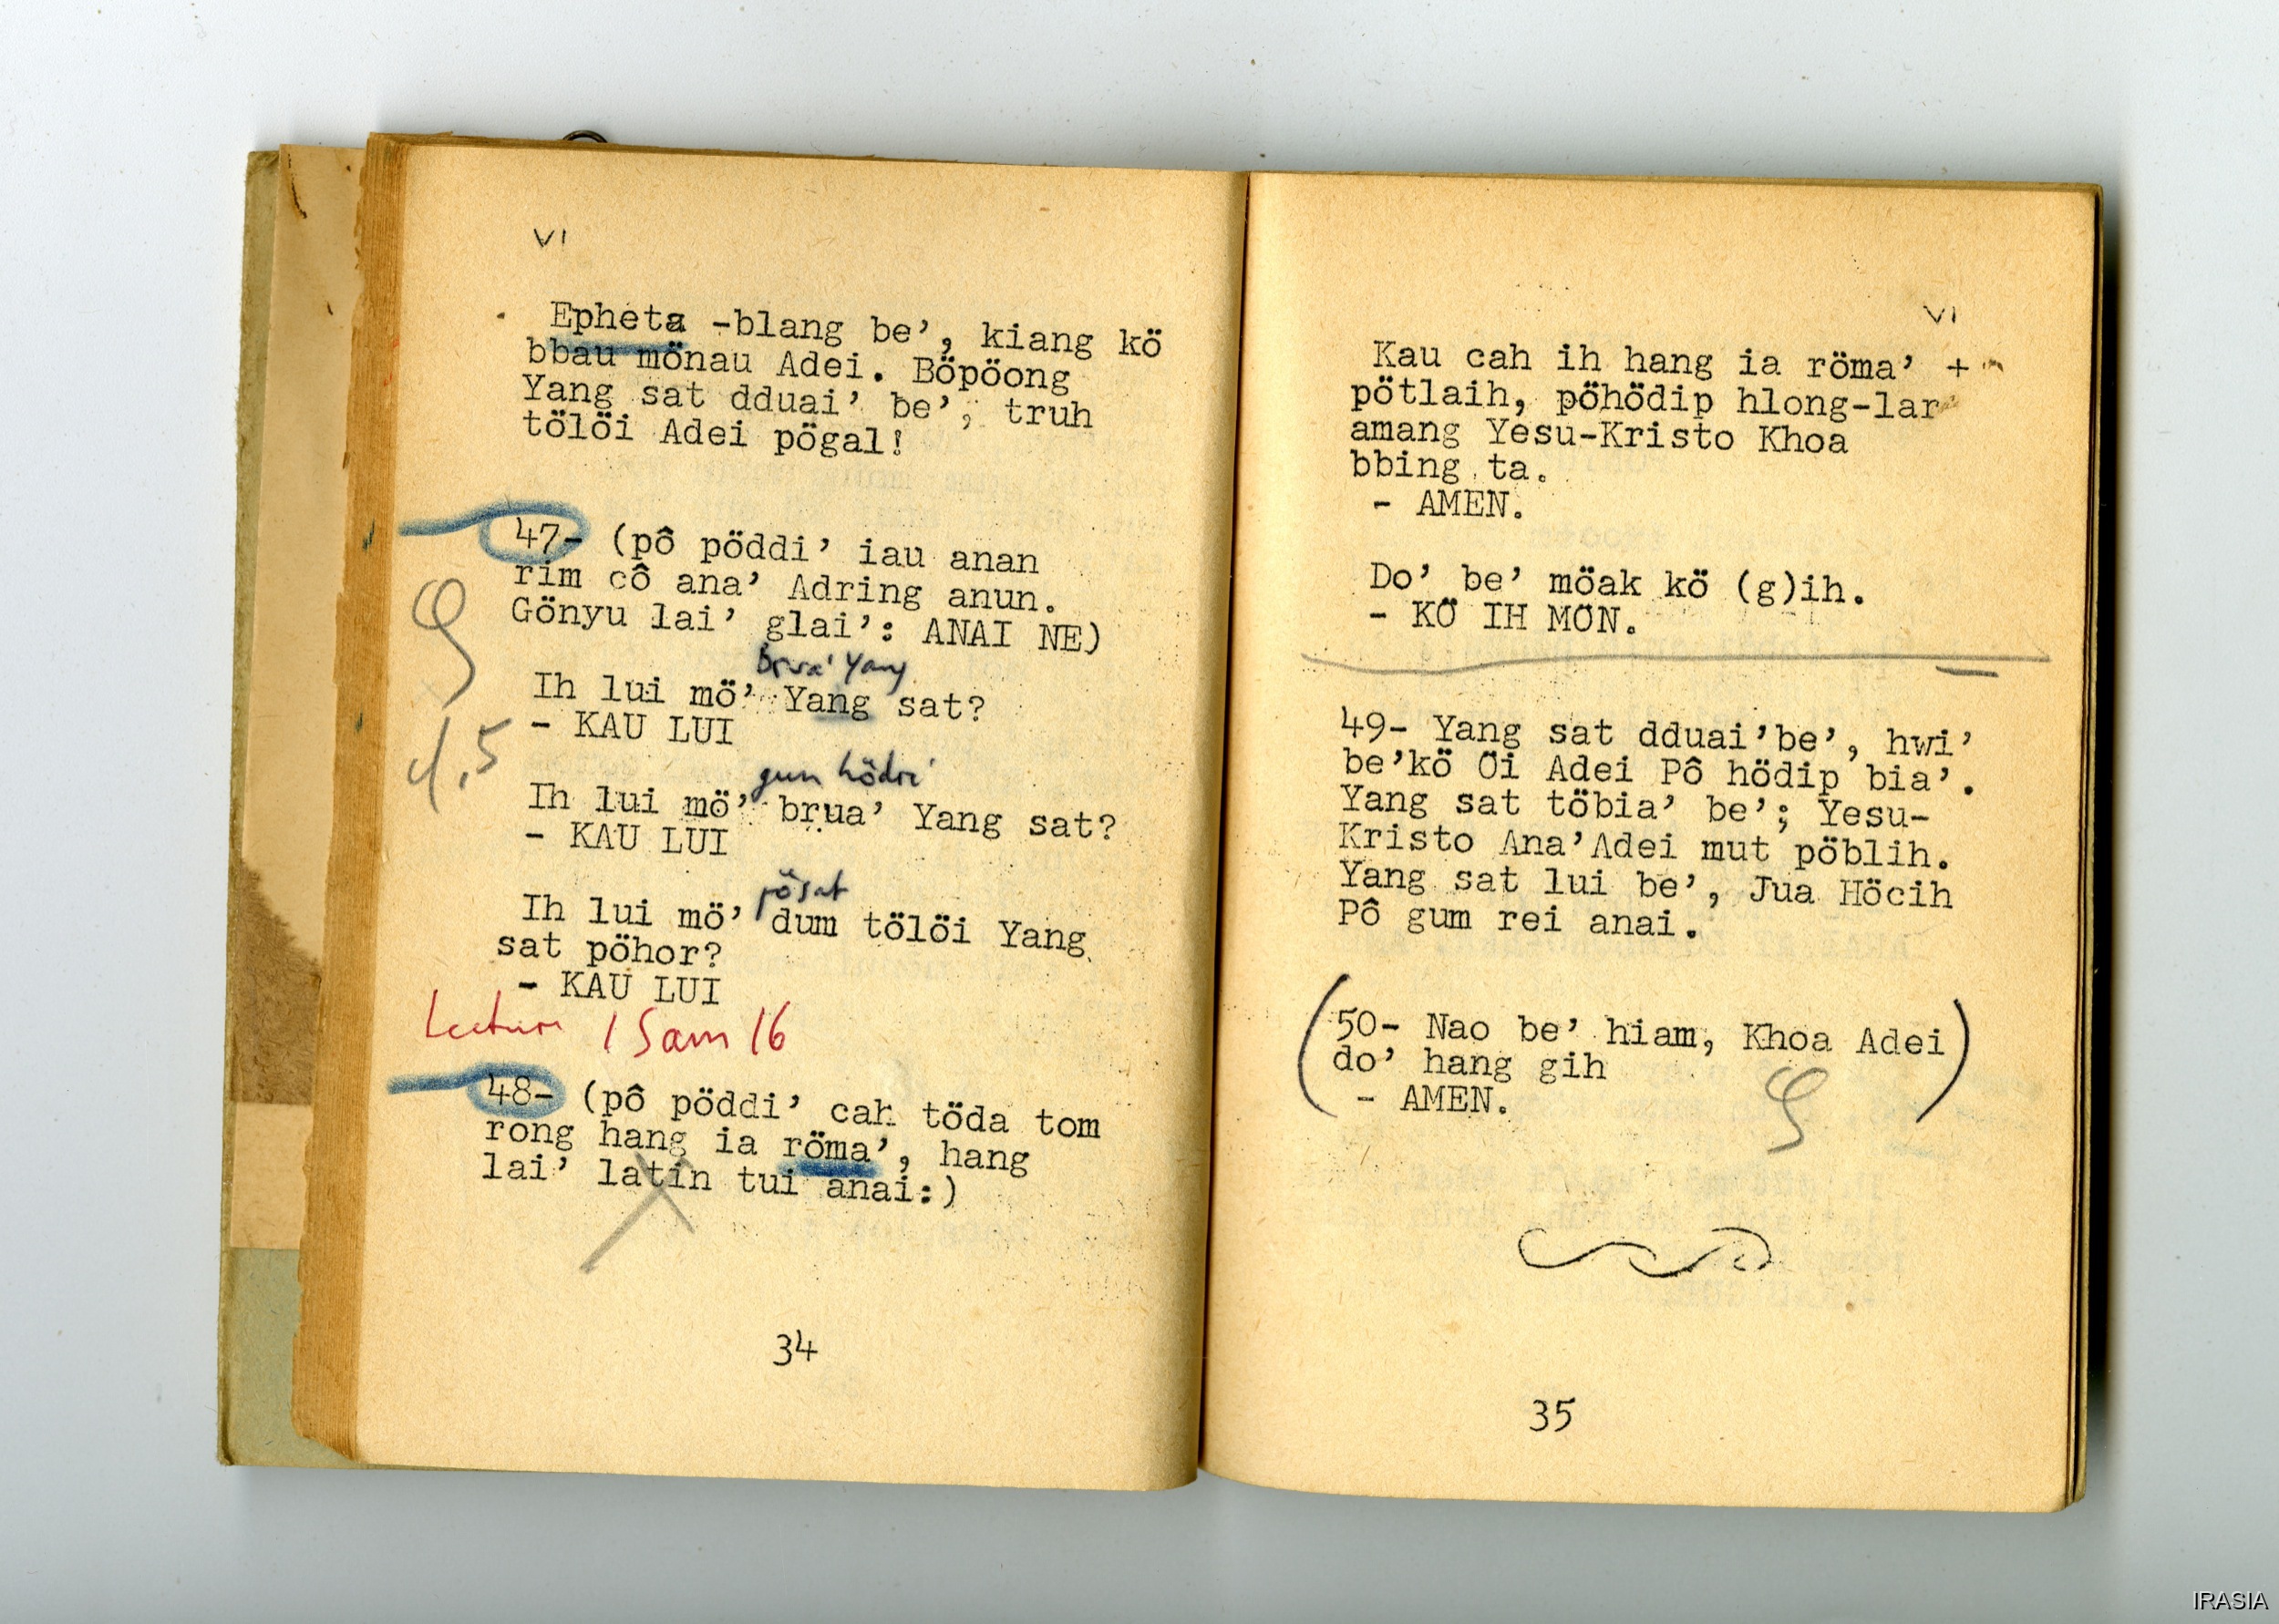 VI
Epheta -blang be', kiang kö
bbau mönau Adei. Böpöong
Yang sat dduai' be', truh
tölöi Adei pögal!
47- (pô pöddi' iau anan
rim cô ana' Adring anun.
Gönyu lai' glai': ANAI NE)
Brua' Yang
Ih lui mö' Yang sat?
- KAU LUI
4,5
gun hödri'
Ih lui mö' brua' Yang sat?
- KAU LUI
pösat
Ih lui mö' dum tölöi Yang
sat pöhor?
- KAU LUI
Lecture 1 Sam 16
48- (pô pöddi' cah töda tom
rong hang ia röma', hang
lai' latin tui anai:)
34
VI
Kau cah ih hang ia röma' +
pötlaih, pöhödip hlong-lar
amang Yesu-Kristo Khoa
bbing ta.
- AMEN.
Do' be' möak kö (g)ih.
- KÖ IH MÖN.
49- Yang sat dduai'be', hwi'
be'kö Öi Adei Pô hödip bia'.
Yang sat töbia' be'; Yesu-
Kristo Ana'Adei mut pöblih.
Yang sat lui be', Jua Höcih
Pô gum rei anai.
50- Nao be' hiam, Khoa Adei
do' hang gih
- AMEN.
35
IRASIA